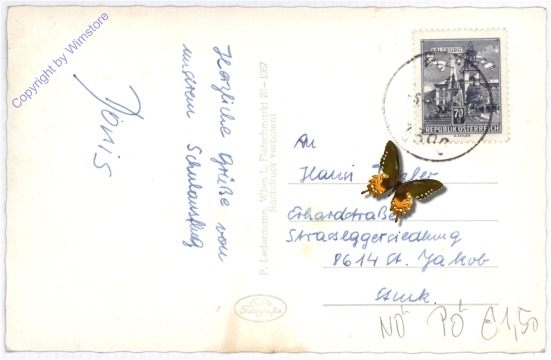 Copyright by Wimstore
Herzliche Grüße von
unserem Schulausflug
P. Ledermann, Wien 1, Fleischmarkt 20 – 1957
Nachdruck verboten!
SALZBURG
70
REPUBLIK ÖSTERREICH
An
Hansi
Erhardstraße
Strasseggersiedlung
8614 St. Jakob
Stmk.
Echte
Fotografie
NÖ PÖ €1,50